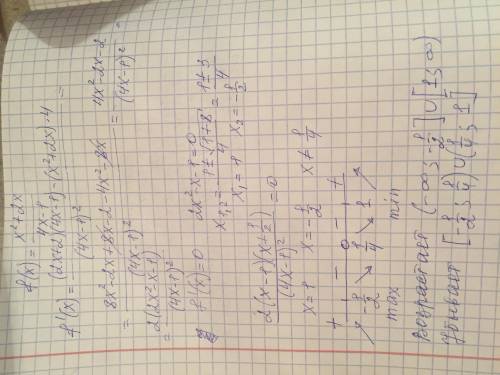 f(x) = x²+2x / 4x-1
f'(x) = (2x+2)(4x-1)-(x²+2x)·4 / (4x-1)² =
= 8x²-2x+8x-2-4x²-8x / (4x-1)² = 4x²-2x-2 / (4x-1)² =
= 2(2x²-x-1) / (4x-1)²
f'(x)=0 2x²-x-1=0
x₁,₂ = 1±√1+8 / 4 = 1±3 / 4
x₁=1 x₂=-1/2
2(x-1)(x+1/2) / (4x-1)² = 0
x=1 x=-1/2 x≠1/4
+ - 0 - +
-1/2 1/4 1
max min
Возрастает (-∞; -1/2] ∪ [1; ∞)
Убывает [-1/2; 1/4) ∪ (1/4; 1]